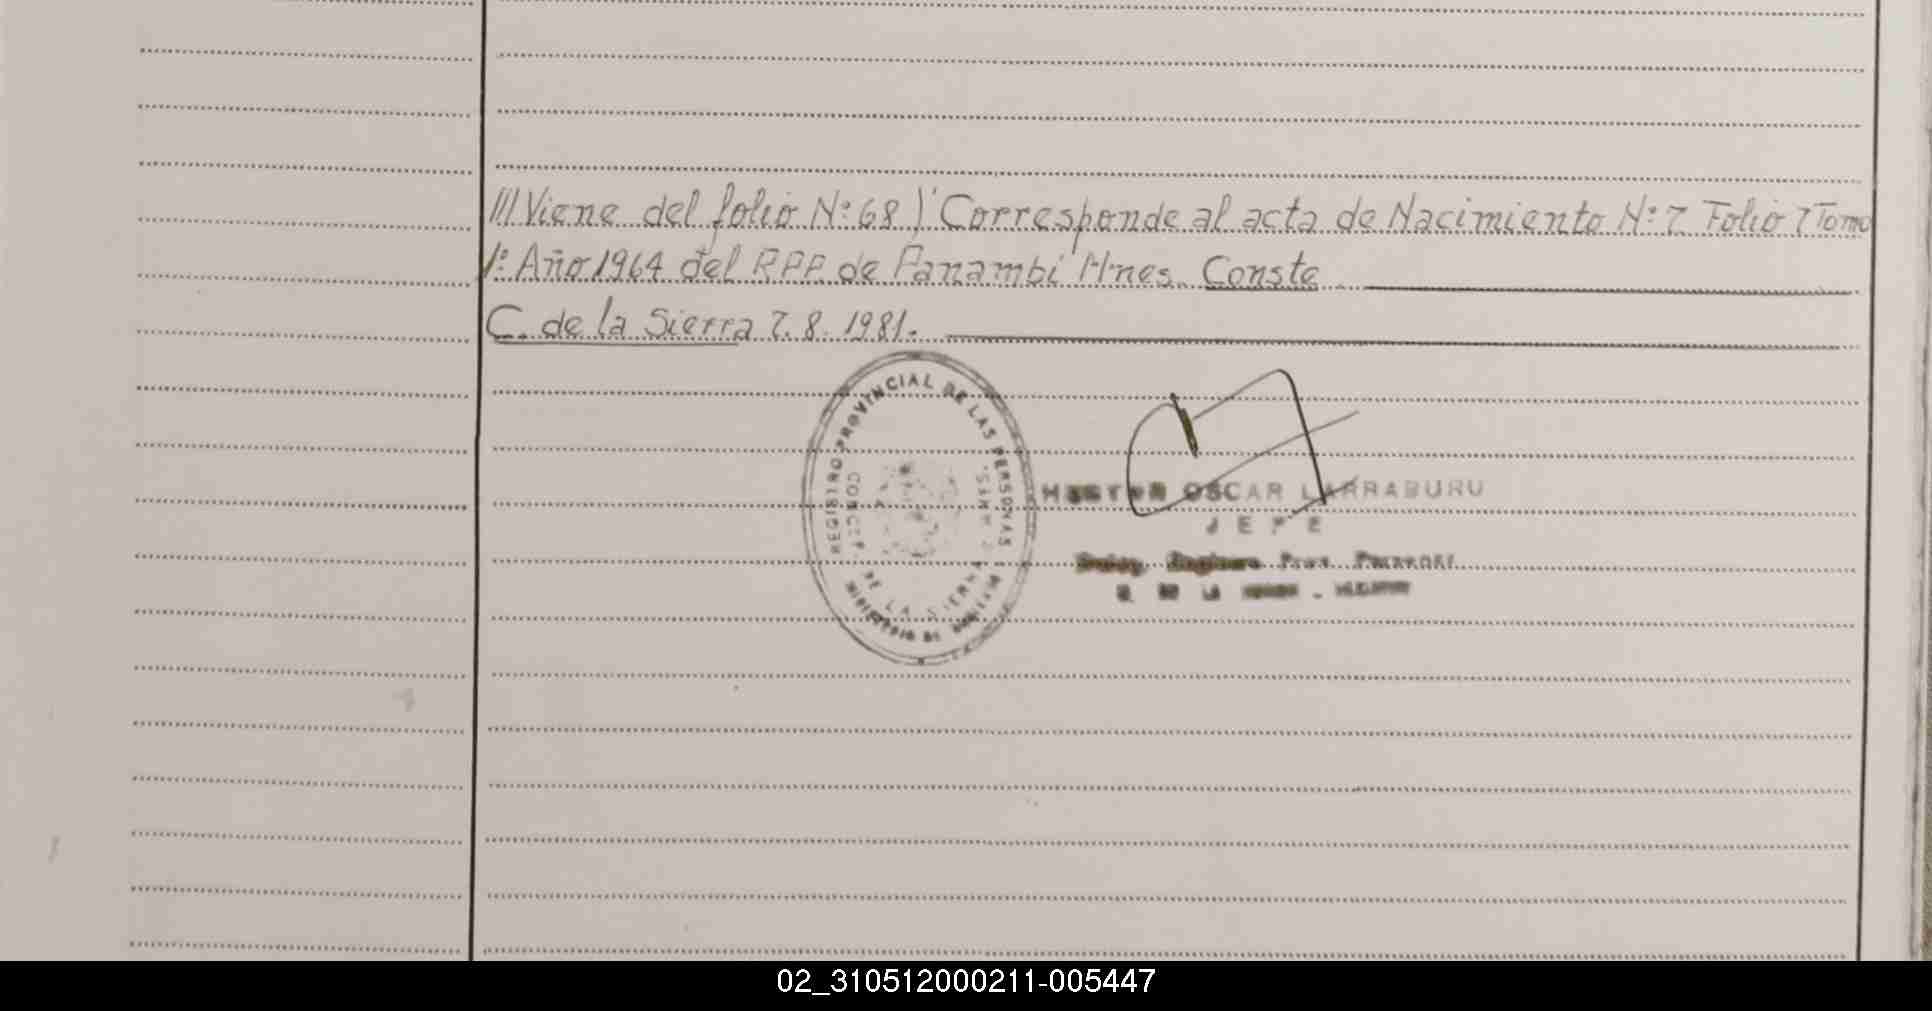 ///Viene del folio N:68)" Corresponde al acta de Nacimiento N:7 Folio 7 Tomo
1: Año 1964 del RPP. de Panambí Mnes. Conste
C. de la Sierra 7.8.1981.
REGISTRO PROVINCIAL DE LAS PERSONAS
CONCEP. DE LA SIERRA
MINISTERIO DE
OSCAR LARRABURU
JEFE
DE LA
02_310512000211-005447